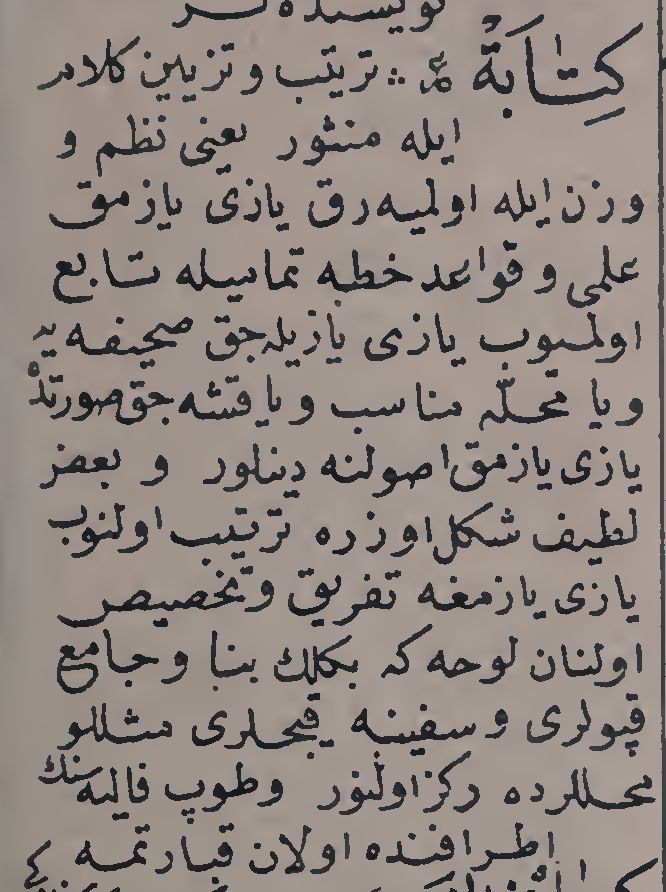 نویسنده لر
كِتَابَةٌ ع ؞ ترتیب و تزیین كلام
ایله منثور یعنی نظم و
وزن ایله اولمیه رق یازی یازمق
علمی و قواعد خطه تمامیله تابع
اولمیوب یازی یازیله جق صحیفه یه
ویا محلّه مناسب ویاقشه جق صورتدْه
یازی یازمق اصولنه دینلور و بعض
لطیف شكل اوزره ترتیب اولنوب
یازی یازمغه تفریق و تخصیص
اولنان لوحه كه بكلك بنا و جامع
قپولری و سفینه قیچلری مثللو
محللرده ركز اولنور و طوپ قالبه سنك
اطرافنده اولان قبارتمه